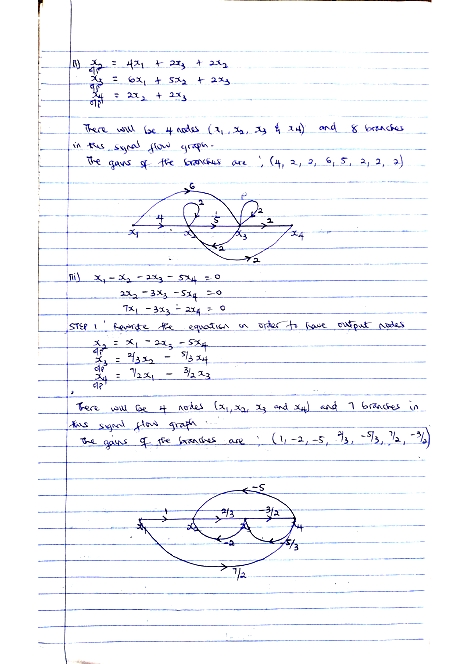 ii) x2 = 4x1 + 2x3 + 2x2
o/p
x3 = 6x1 + 5x2 + 2x3
o/p
x4 = 2x2 + 2x3
o/p
There will be 4 nodes (x1, x2, x3 & x4) and 8 branches
in this signal flow graph.
The gains of the branches are ; (4, 2, 2, 6, 5, 2, 2, 2)
6
2 2
4 5 2
x1 x2 x3 x4
2
2
iii) x1 - x2 - 2x3 - 5x4 = 0
2x2 - 3x3 - 5x4 = 0
7x1 - 3x3 - 2x4 = 0
STEP 1: Rewrite the equation in order to have output nodes
x2 = x1 - 2x3 - 5x4
o/p
x3 = 2/3x2 - 5/3x4
o/p
x4 = 7/2x1 - 3/2x3
o/p
There will be 4 nodes (x1, x2, x3 and x4) and 7 branches in
this signal flow graph.
The gains of the branches are : (1, -2, -5, 2/3, -5/3, 7/2, -3/2)
-5
1 2/3 -3/2
x1 x2 x3 x4
-2 -5/3
7/2